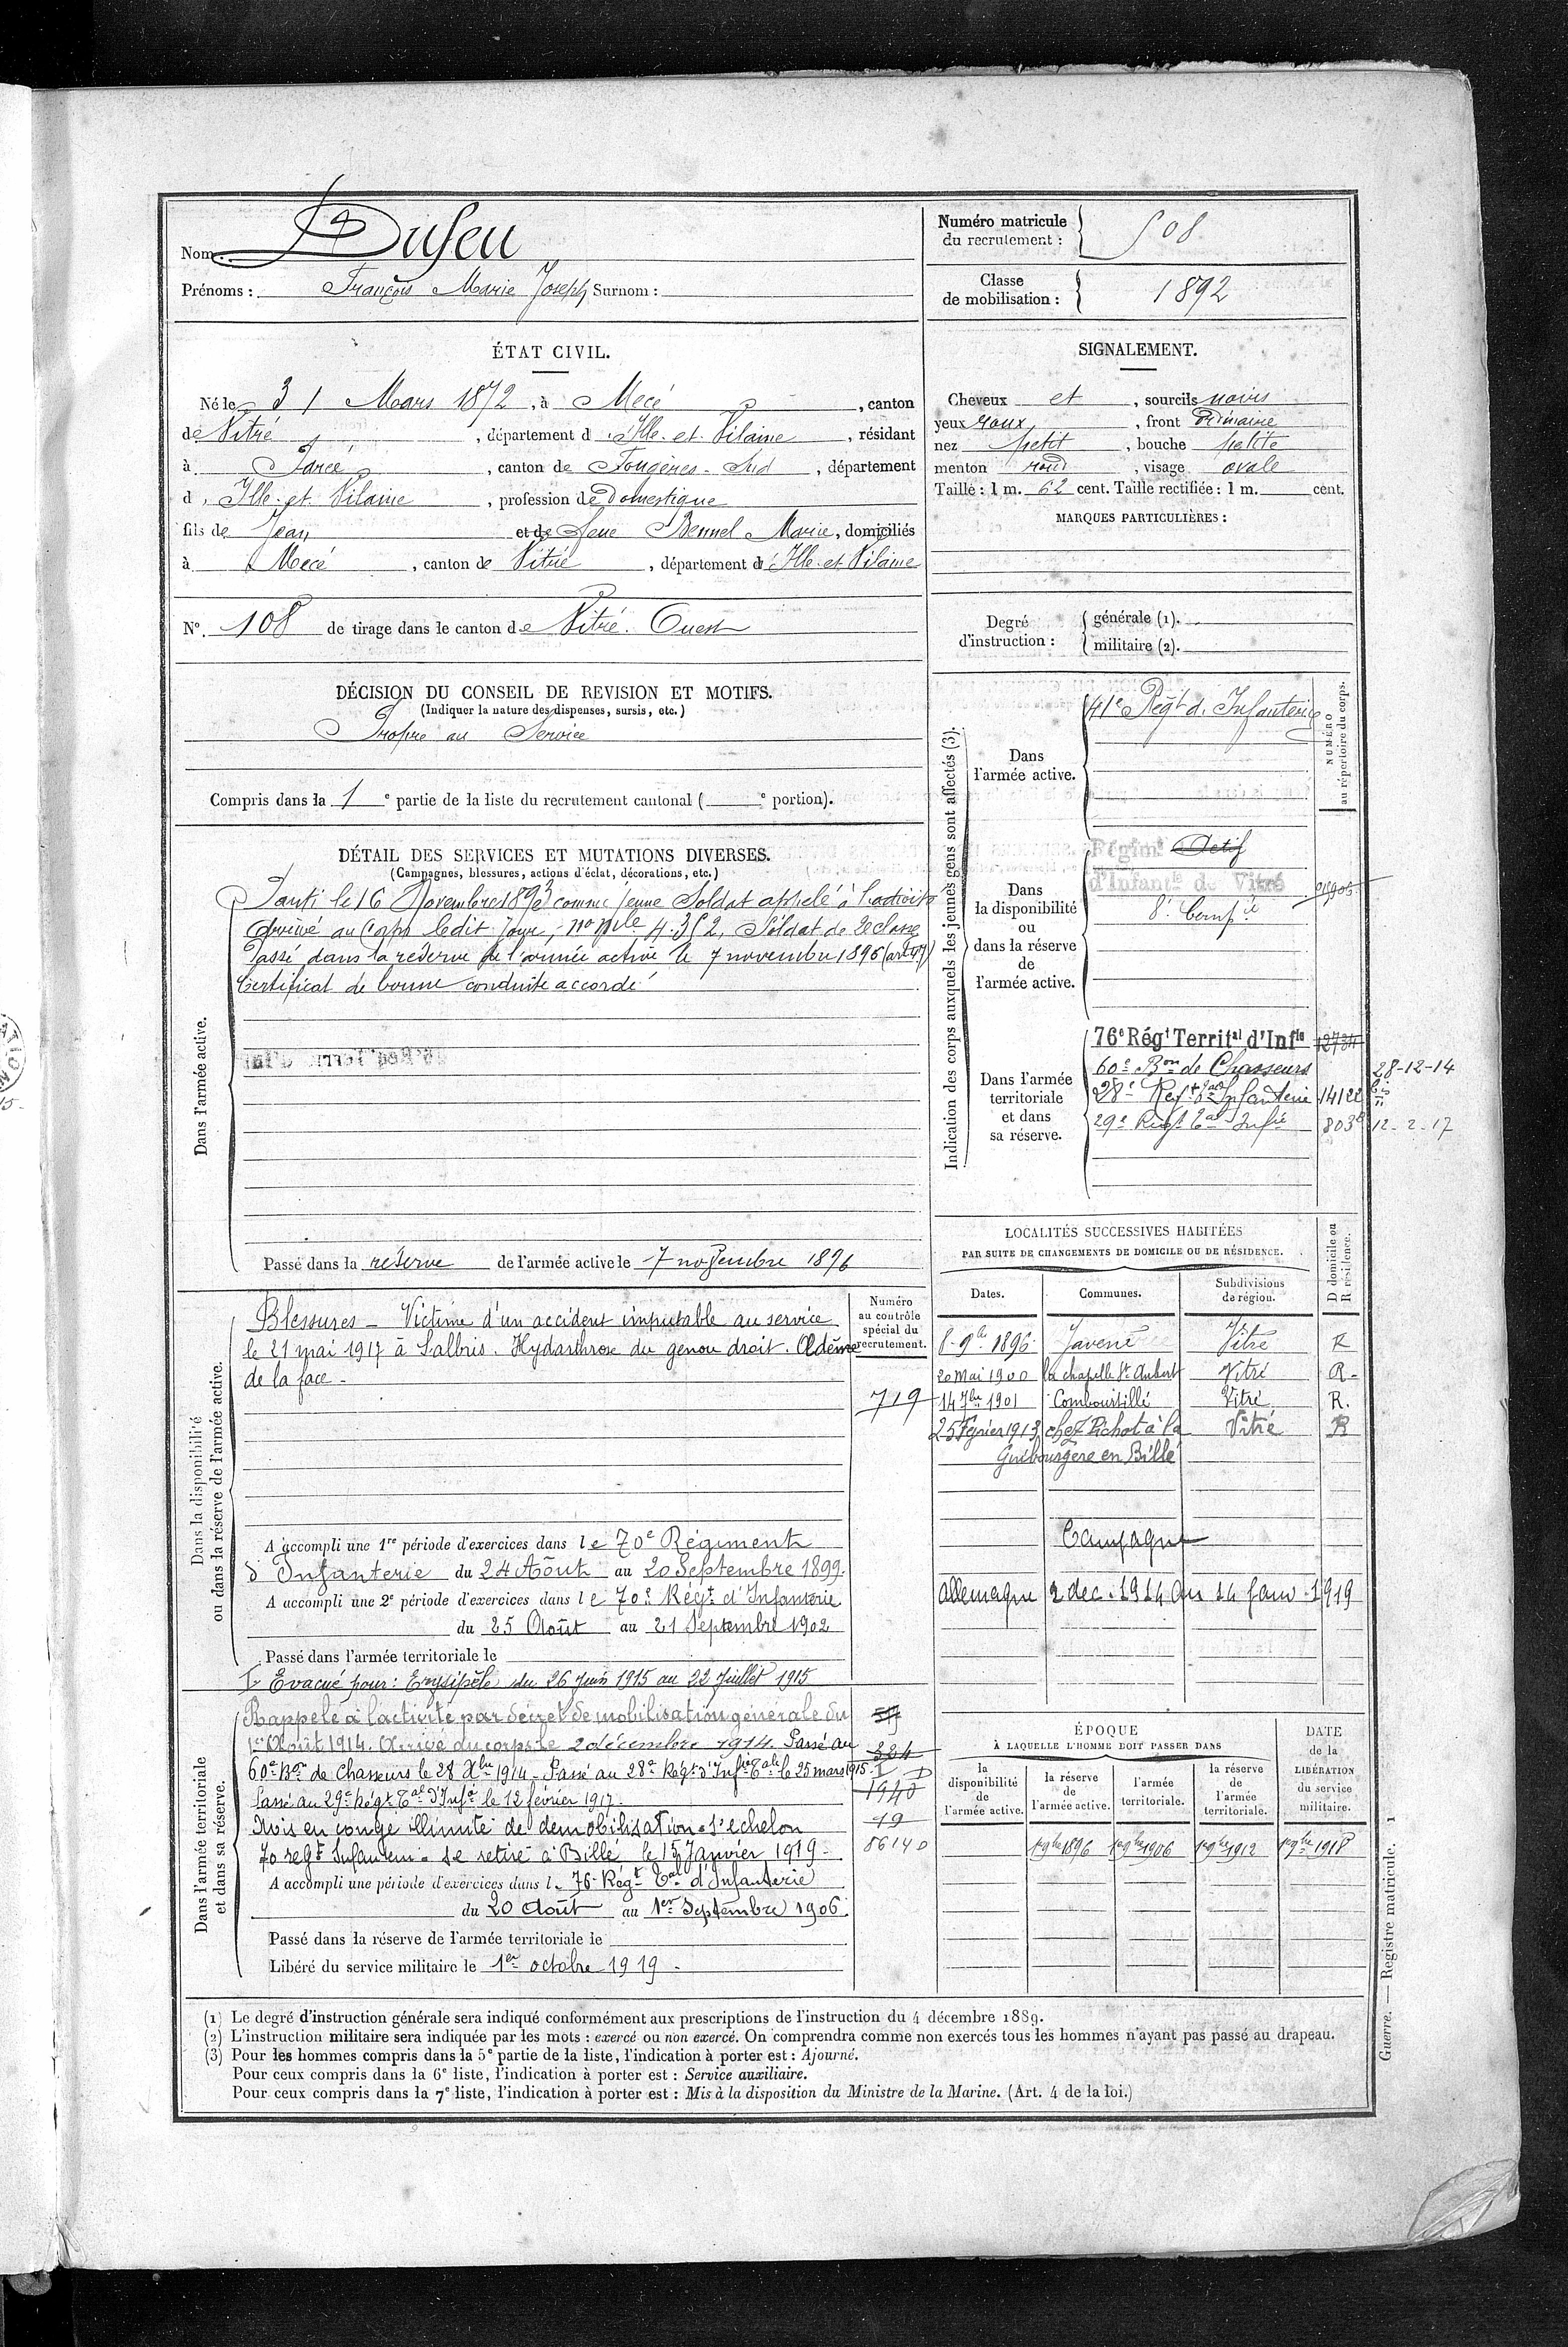 Nom : Dufeu
Prénoms : François Marie Joseph Surnom :
Numéro matricule du recrutement : 508
Classe de mobilisation : 1892
ÉTAT CIVIL.
Né le 31 Mars 1872, à Mecé, canton
de Vitré, département d'Ille-et-Vilaine, résidant
à Parcé, canton de Fougères-Sud, département
d'Ille-et-Vilaine, profession de Domestique
fils de Jean et de feue Bennel Marie, domiciliés
à Mecé, canton de Vitré, département d'Ille-et-Vilaine
N° 108 de tirage dans le canton de Vitré-Ouest
SIGNALEMENT.
Cheveux et, sourcils noirs
yeux roux, front ordinaire
nez petit, bouche petite
menton rond, visage ovale
Taille : 1 m. 62 cent. Taille rectifiée : 1 m. cent.
MARQUES PARTICULIÈRES :
Degré d'instruction : générale (1).
militaire (2).
DÉCISION DU CONSEIL DE REVISION ET MOTIFS.
(Indiquer la nature des dispenses, sursis, etc.)
Propre au Service
Compris dans la 1e partie de la liste du recrutement cantonal ( e portion).
DÉTAIL DES SERVICES ET MUTATIONS DIVERSES.
(Campagnes, blessures, actions d'éclat, décorations, etc.)
Dans l'armée active.
Parti le 16 Novembre 1893 comme jeune Soldat appelé à l'activité
Arrivé au Corps ledit Jour, no mle 4.352, Soldat de 2e classe
Passé dans la réserve de l'armée active le 7 novembre 1896 (art 47)
Certificat de bonne conduite accordé
Passé dans la réserve de l'armée active le 7 novembre 1896
Indication des corps auxquels les jeunes gens sont affectés (3).
NUMÉRO au répertoire du corps.
Dans l'armée active.
41e Régt d'Infanterie
Dans la disponibilité ou dans la réserve de l'armée active.
Régimt Actif
d'Infantie de Vitré
8e Compie
Dans l'armée territoriale et dans sa réserve.
76e Régt Territal d'Infie 12734
60e Bon de Chasseurs 28-12-14
28e Regt tal Infanterie 14122 bis
29e Regt Tal Infie 8038 12-2-17
Dans la disponibilité ou dans la réserve de l'armée active.
Numéro au contrôle spécial du recrutement.
Blessures - Victime d'un accident imputable au service
le 21 mai 1917 à Salbris. Hydarthrose du genou droit. Œdème
de la face -
719
A accompli une 1re période d'exercices dans le 70e Régiment
d'Infanterie du 24 Août au 20 Septembre 1899.
A accompli une 2e période d'exercices dans le 70e Régt d'Infanterie
du 25 Août au 21 Septembre 1902
Passé dans l'armée territoriale le
I Evacué pour : Erysipèle du 26 Juin 1915 au 22 Juillet 1915
LOCALITÉS SUCCESSIVES HABITÉES
PAR SUITE DE CHANGEMENTS DE DOMICILE OU DE RÉSIDENCE.
Dates. Communes. Subdivisions de région. D domicile ou R résidence.
8-9bre 1896 Javené Vitré R
20 Mai 1900 la chapelle St Aubert Vitré R.
14 7bre 1901 Combourtillé Vitré R.
25 Février 1913 chez Pichot à la Vitré R
Guibourgère en Billé
Campagne
Allemagne 2 dec. 1914 au 14 Janv. 1919
Dans l'armée territoriale et dans sa réserve.
Rappelé à l'activité par décret de mobilisation générale du
1er Août 1914. Arrivé au corps le 2 décembre 1914. Passé au
60e Bon de Chasseurs le 28 Xbre 1914 - Passé au 28e Régt d'Infie Tale le 25 mars 1915. I
Passé au 29e Régt Tal d'Infie le 12 février 1917.
Mis en congé illimité de démobilisation 1er echelon
70 regt Infanterie - se retire à Billé le 15 Janvier 1919 -
324
1940
19
86140
A accompli une période d'exercices dans le 76e Régt Tal d'Infanterie
du 20 Août au 1er Septembre 1906.
Passé dans la réserve de l'armée territoriale le
Libéré du service militaire le 1er octobre 1919 -
ÉPOQUE À LAQUELLE L'HOMME DOIT PASSER DANS
DATE de la LIBÉRATION du service militaire.
la disponibilité de l'armée active.
la réserve de l'armée active.
l'armée territoriale.
la réserve de l'armée territoriale.
1 9bre 1896 1 9bre 1906 1 9bre 1912 1 9bre 1918
(1) Le degré d'instruction générale sera indiqué conformément aux prescriptions de l'instruction du 4 décembre 1889.
(2) L'instruction militaire sera indiquée par les mots : exercé ou non exercé. On comprendra comme non exercés tous les hommes n'ayant pas passé au drapeau.
(3) Pour les hommes compris dans la 5e partie de la liste, l'indication à porter est : Ajourné.
Pour ceux compris dans la 6e liste, l'indication à porter est : Service auxiliaire.
Pour ceux compris dans la 7e liste, l'indication à porter est : Mis à la disposition du Ministre de la Marine. (Art. 4 de la loi.)
Guerre. — Registre matricule. 1